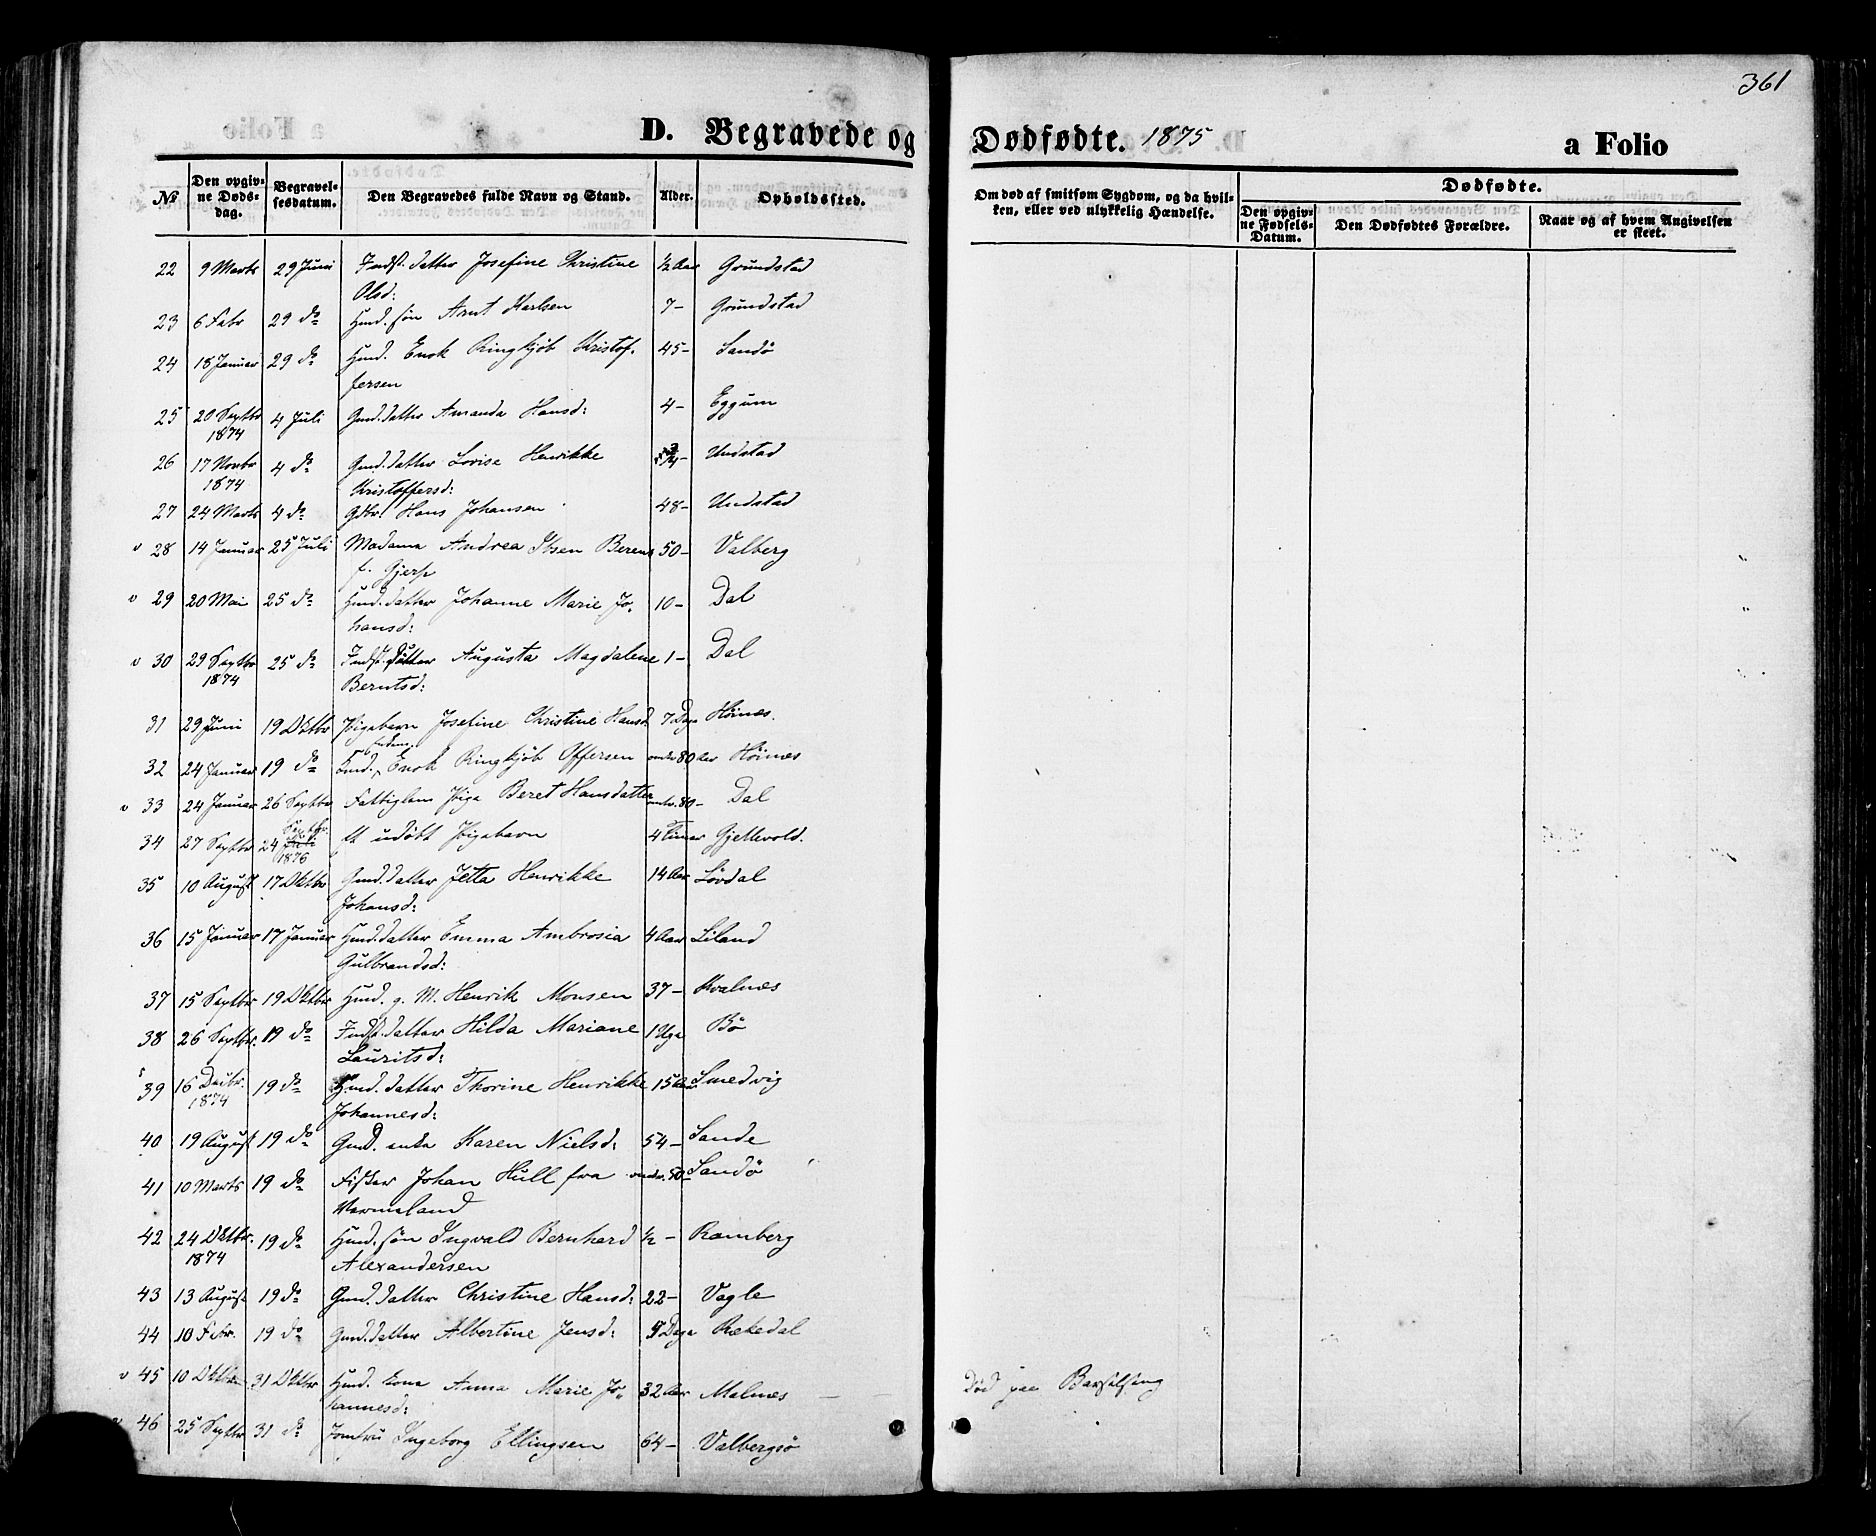 361
D. Begravede og Dødfødte. 1875 a Folio
№ Den opgivne Dødsdag. Begravelsesdatum. Den Begravedes fulde Navn og Stand. Alder. Opholdssted. Om død af smitsom Sygdom, og da hvilken, eller ved ulykkelig Hændelse. Dødfødte.
Den opgivne Fødsels-Datum. Den Dødfødtes Forældre. Naar og af hvem Angivelsen er skeet.
22 9 Marts 29 Juni Indst. datter Josefine Christine ½ Aar Grundstad
Olsd:
23 6 Febr 29 do Gmd. søn Arnt Karlsen 7- Grundstad
24 18 Januar 29 do Hmd. Enok Ringkjøb Kristof- 45- Sandö
fersen
25 20 Septbr 4 Juli Gmd. datter Amanda Hansd: 4- Eggum
1874
26 17 Novbr 4 do Gmd. datter Lovise Henrikke Undstad
1874 Kristoffersd:
27 24 Marts 4 do Gdbr. Hans Johansen 48- Undstad
v 28 14 Januar 25 Juli Madama Andrea Ibsen Berens 50- Valberg
f. Gjerp
v 29 20 Mai 25 do Hmd. datter Johanne Marie Jo- 10- Dal
hansd:
v 30 29 Septbr 25 do Indst. datter Augusta Magdalene 1- Dal
1874 Berntsd:
31 29 Juni 19 Oktbr Pigebarn Josefine Christine Hansd. 7 Dage Höines.
32 24 Januar 19 do Enok Ringkjöb Offersen 80 Aar Höines
v 33 24 Januar 26 Septbr Fattiglem Pige Beret Hansdatter 80- Dal
34 27 Septbr 24 Septbr. Juli 1876 et udöbt Pigebarn 4 Timer Gjellevold.
35 10 August 17 Oktbr Gmd. datter Jetta Henrikke 14 Aar Lövdal
Johansd:
36 15 Januar 17 Januar Hmd. datter Emma Ambrosia 4 Aar Liland
Gulbrandsd:
37 15 Septbr 19 Oktbr Hmd. g. M. Henrik Monsen 37- Kvalnes
38 26 Septbr. 19 do Indst. datter Hilda Mariane 1 Uge Bö
Lauritsd:
39 16 Decbr. 19 do Hmd. datter Thorine Henrikke 15 Aar Smedvig
1874 Johannesd:
40 19 August 19 do Gmd. enke Karen Nielsd: 54- Sande
41 10 Marts 19 do Fisker Johan Hull fra Sandö
Vermeland
42 24 Oktbr. 19 do Hmd. søn Ingvald Bernhard ½ - Ramberg
1874 Alexandersen
43 13 August 19 do Gmd. datter Christine Hansd: 22- Vagle
44 10 Febr. 19 do Gmd. datter Albertine Jensd: Dage Rekedal
v 45 10 Oktbr 31 Oktbr Hmd. kone Anna Marie Jo- 32 Aar Malnes Död paa Barselseng
hannesd:
46 25 Septbr 31 do Jomfru Ingeborg Ellingsen 64- Valbergsö